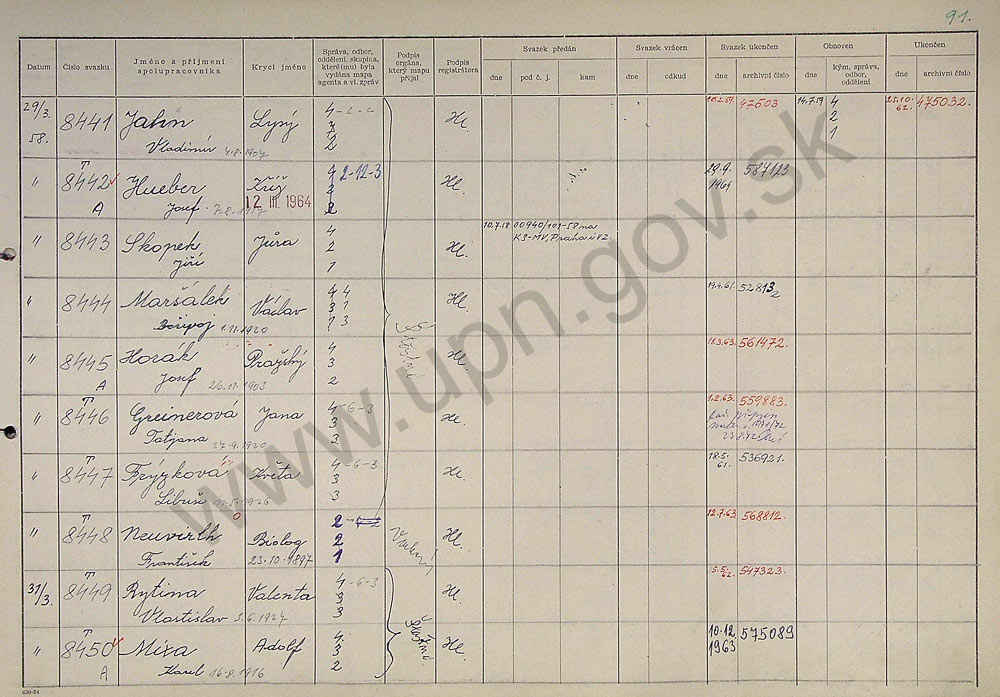 91.
Datum Číslo svazku Jméno a příjmení spolupracovníka Krycí jméno Správa, odbor, oddělení, skupina, které(mu) byla vydána mapa agenta a vl. zpráv Podpis orgána, který mapu přijal Podpis registrátora Svazek předán Svazek vrácen Svazek ukončen Obnoven Ukončen
dne pod č. j. kam dne odkud dne archivní číslo dne kým, správa, odbor, oddělení dne archivní číslo
29/3. 58. 8441 Jahn Lysý 4-2-2 Hl. 10.2.59 47503 14.7.59 4 25.10. 62. 475032.
2
Vladimír 4.8.1907 2 1
" T 8442 Hueber Kříž 4 2-12-3 Hl. 29.9. 1964 587123
A Josef 7-8-1917 12 III. 1964 2
" 8443 Skopek Jůra 4 Hl. 10.7.58 00940/109-58 na
2 KS-MV, Praha
Jiří 1
" 8444 Maršálek Václav 4 4 Hl. 19.4.61. 52813
3 1
Bořivoj 1.11.1920 1 3
" 8445 Horák Pražský 4 Hl. 11.3.63. 561472.
3
A Josef 26.11.1903 2
" T 8446 Greinerová Jana 4-6-3 Hl. 1.2.63. 559883.
3
Tatjana 27.9.1920 3
" T 8447 Frýzková Květa 4-6-3 Hl. 18.5. 61. 536921.
3
Libuše 11.5.1926 3
" T 8448 Neuvirth Biolog 2 Hl. 12.7.63 568812.
2
František 23.10.1897 1
31/3. T 8449 Rytina Valenta 4-6-3 Hl. 5.5. 62. 547323.
3
Vlastislav 3.6.1927 3
" T 8450 Mixa Adolf 4 Hl. 10.12. 1963 575089
3
A Karel 16.8.1916 2
630-54
www.upn.gov.sk